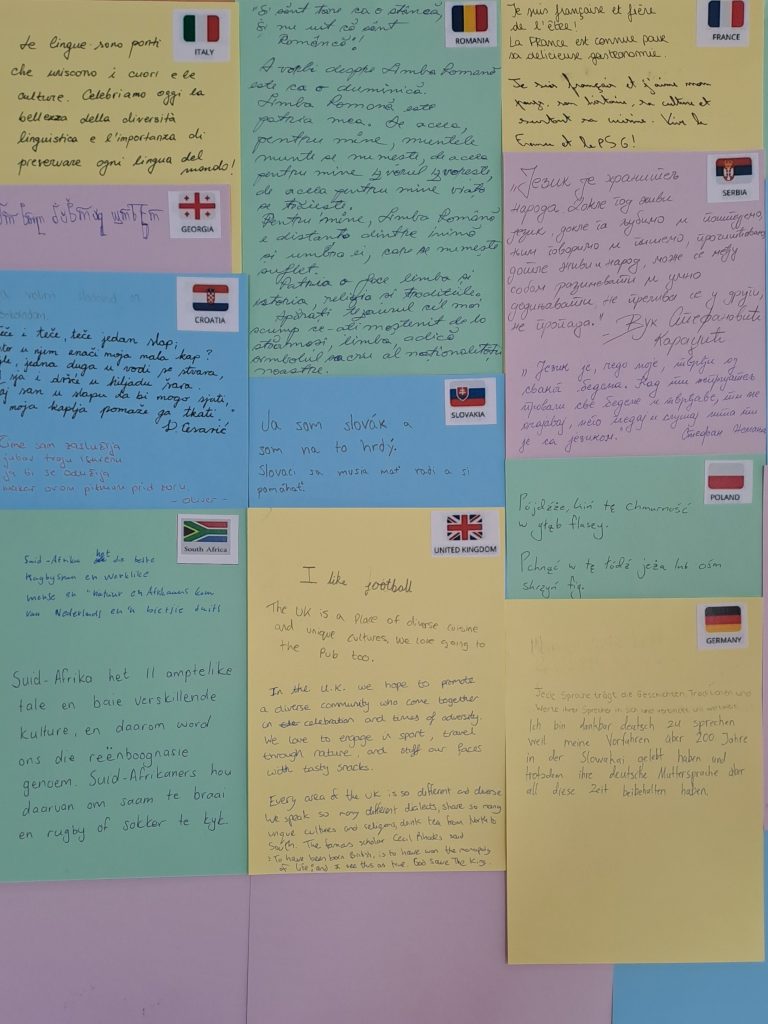 ITALY
Le lingue sono ponti
che uniscono i cuori e le
culture. Celebriamo oggi la
bellezza della diversità
linguistica e l'importanza di
preservare ogni lingua del
mondo!
GEORGIA
CROATIA
teče i teče, teče jedan slap;
u njem znači moja mala kap?
jedna duga u vodi se stvara,
i sja i drhće u hiljadu šara.
san u slapu da bi mogo sjati,
moja kaplja pomaže ga tkati."
D. Cesarić
Čime sam zaslužila
ljubav tvoju
ja bi se odužila
makar ovom pjesmom pred zoru.
- Oliver -
South Africa
Suid-Afrika het die beste
en
mense en natuur en Afrikaans kom
van Nederlands en 'n bietjie duits
Suid-Afrika het 11 amptelike
tale en baie verskillende
kulture, en daarom word
ons die reënboognasie
genoem. Suid-Afrikaners hou
daarvan om saam te braai
en rugby of sokker te kyk.
ROMANIA
"Și sunt tare ca o stâncă,
Și ne uit că sânt
Româncă"!
A vorbi despre Limba Română
este ca o duminică.
Limba Română este
patria mea. De aceea,
pentru mine, muntele
munte se numește, de aceea
pentru mine izvorul izvorește,
de aceea pentru mine viața
se trăiește.
Pentru mine, Limba Română
e distanța dintre inimă
și umbra ei, care se numește
suflet.
Patria o face limba și
istoria, religia și tradițiile.
tezaurul cel mai
scump ce-ali moștenit de la
strămoși, limba, adică
simbolul sacru al naționalității
noastre.
SLOVAKIA
Ja som slovák a
som na to hrdý.
Slovaci sa musia mať radi a si
pomáhať.
UNITED KINGDOM
I like football
The UK is a place of diverse cuisine
and unique cultures, we love going to
the Pub too.
In the U.K. we hope to promote
a diverse community who come together
in celebration and times of adversity.
We love to engage in sport, travel
through nature, and stuff our faces
with tasty snacks.
Every area of the UK is so different and diverse
We speak so many different dialects, share so many
unique cultures and religions, drink tea from North to
South. The famous scholar Cecil Rhodes said
"To have been born British, is to have won the
of life, and I see this as true. God Save The King.
FRANCE
Je suis française et fière
de l'être!
La France est connue pour
sa délicieuse gastronomie.
Je suis français et j'aime mon
pays, son histoire, sa culture et
surtout sa cuisine. Vive la
France et le PSG!
SERBIA
"Језик је хранитељ
народа. Докле год живи
језик, докле га љубимо и поштујемо,
њим говоримо и пишемо, прочишћавамо,
дотле живи и народ, може се међу
собом разумевати и умно
сједињавати, не прелива се у други,
не пропада." Вук Стефановић
Караџић
"Језик је, чедо моје, тврђи од
сваког бедема. Кад ти непријатељ
провали све бедеме и тврђаве, ти не
очајавај, него гледај и слушај шта ти
је са језиком." Стефан Немања
POLAND
Pójdźże, kiń tę chmurność
w głąb flaszy.
Pchnąć w tę łódź jeża lub ośm
skrzyń fig.
GERMANY
Jede Sprache trägt die Geschichten, Traditionen und
Werte ihrer Sprecher in sich und verbindet uns weltweit.
Ich bin dankbar deutsch zu sprechen
weil meine Vorfahren über 200 Jahre
in der Slowakai gelebt haben und
trotzdem ihre deutsche Muttersprache über
all diese Zeit beibehalten haben.